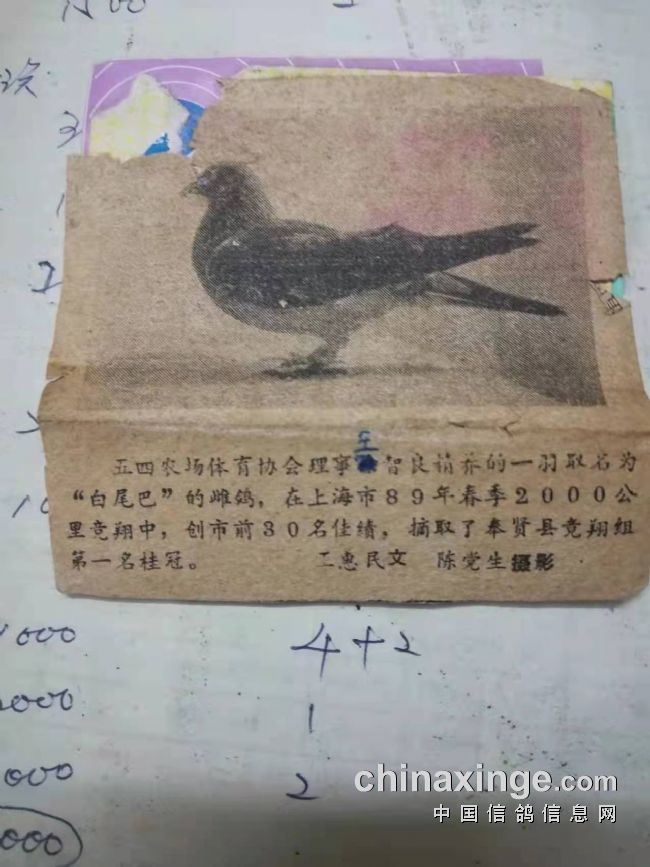 1500
3
五四农场体育协会理事王智良精养的一羽取名为
“白尾巴”的雌鸽，在上海市89年春季2000公
里竞翔中，创市前30名佳绩，摘取了奉贤县竞翔组
第一名桂冠。 工惠民文 陈党生摄影
10
000 4+2
000 1
000 2
000
chinaxinge.com
中国信鸽信息网